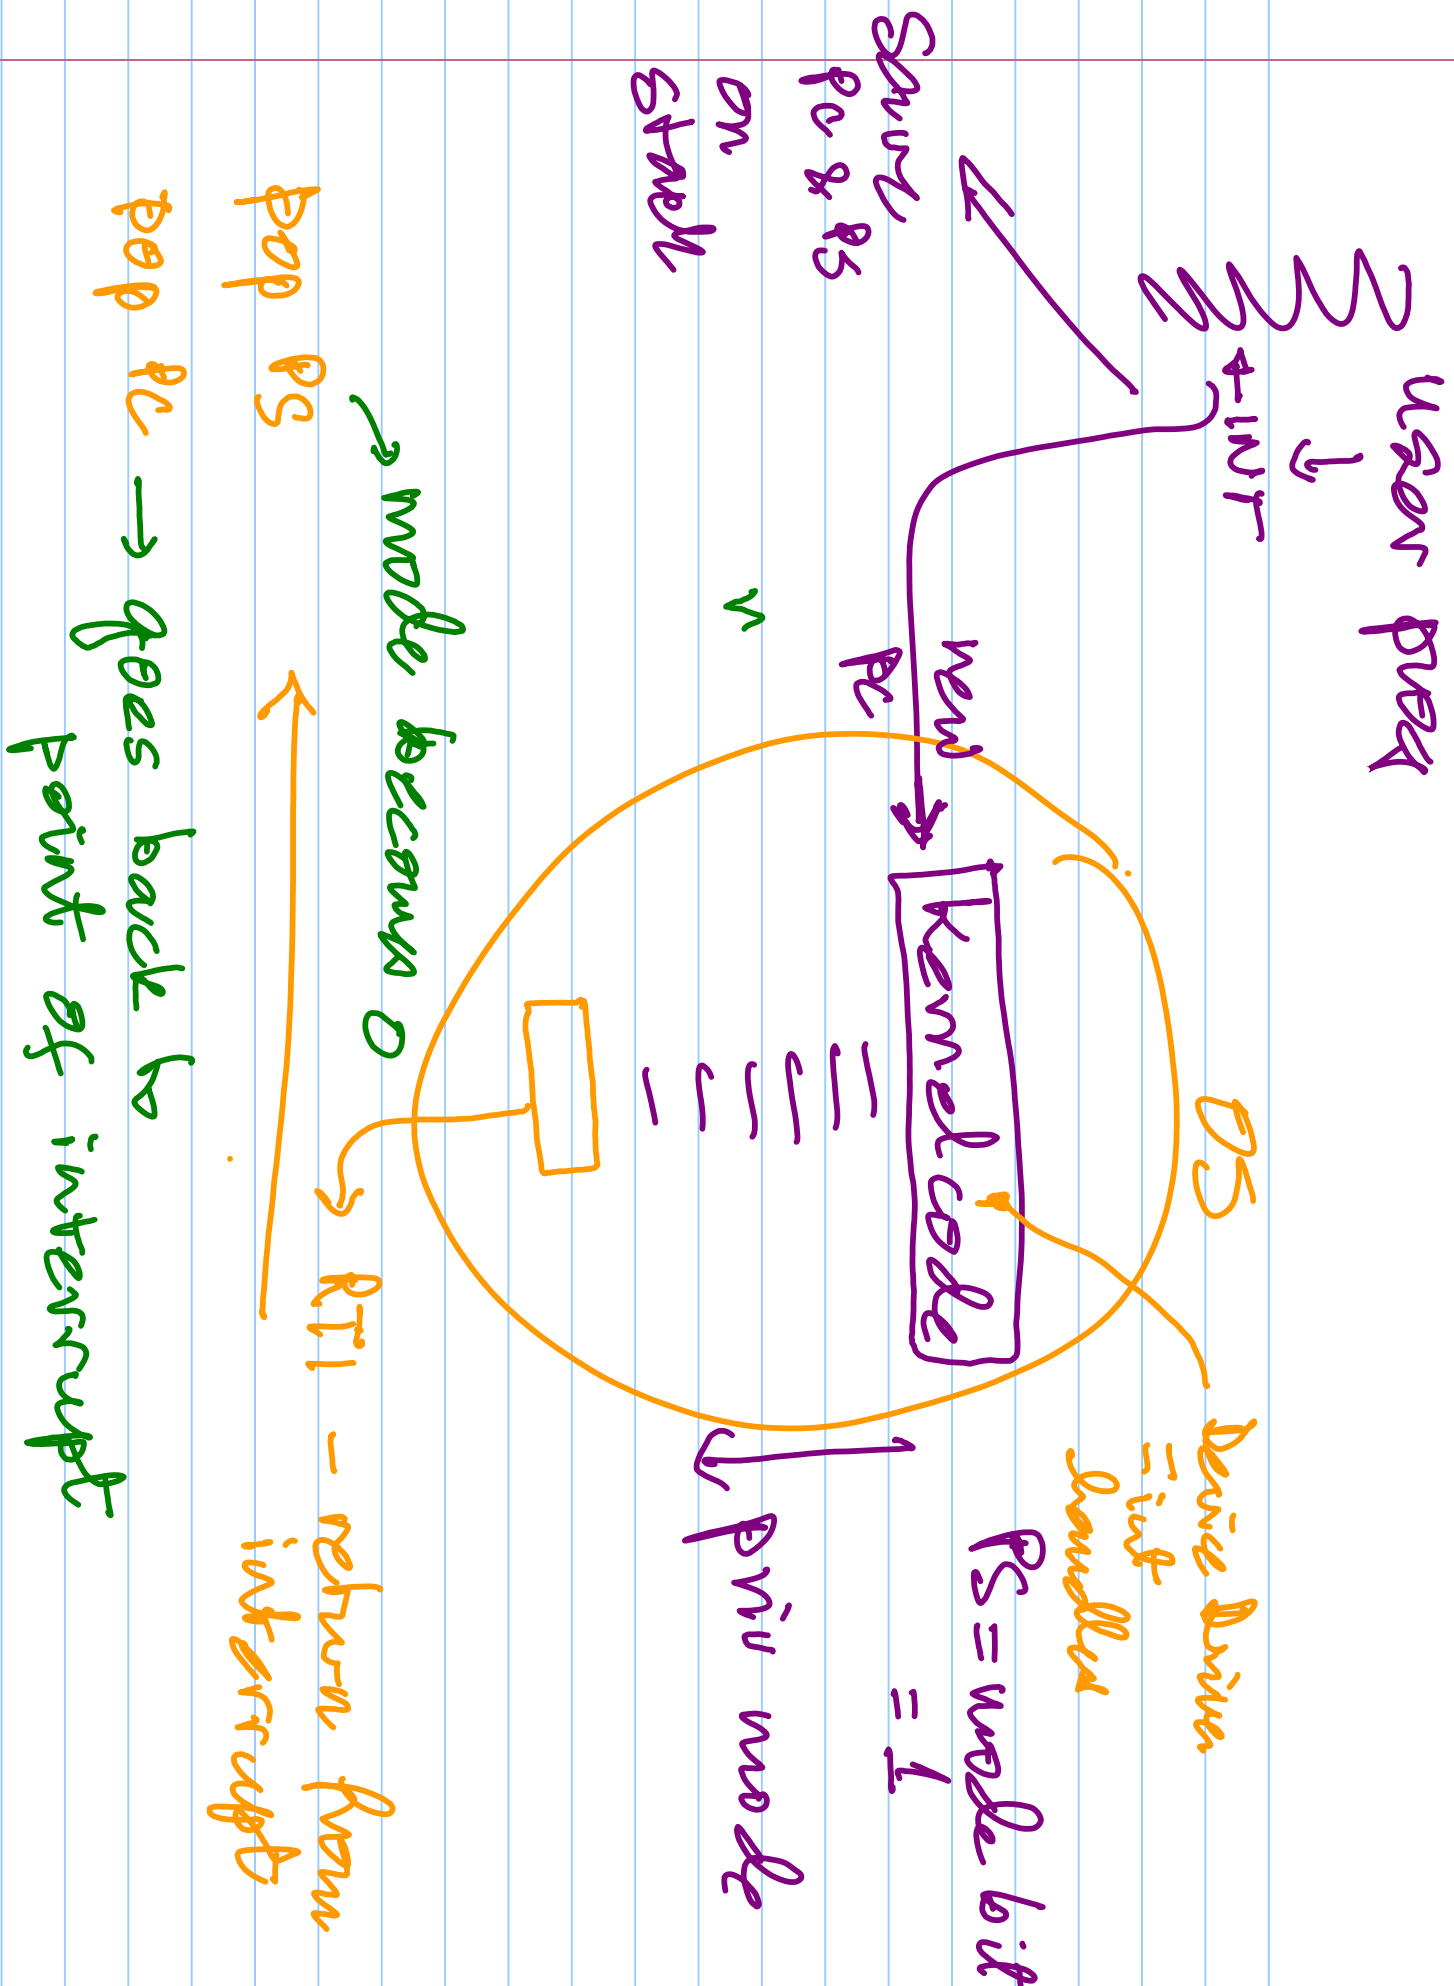 user prog
INT
Save
PC & PS
on
stack
new
PC
OS
Kernel code
Device Driver
= int
handler
PS = mode bit
= 1
priv mode
RTI - return from
interrupt
pop PS
pop PC
mode becomes 0
goes back to
point of interrupt